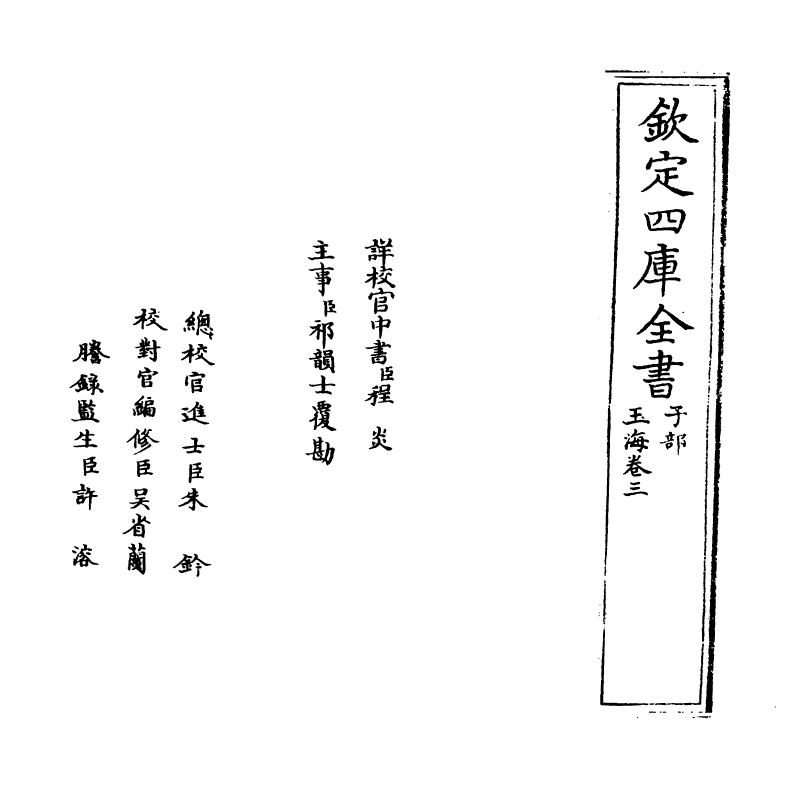 欽定四庫全書
子部
玉海卷三
詳校官中書臣程炎
主事臣祁韻士覆勘
總校官進士臣朱鈐
校對官編修臣吴省蘭
謄録監生臣許溶